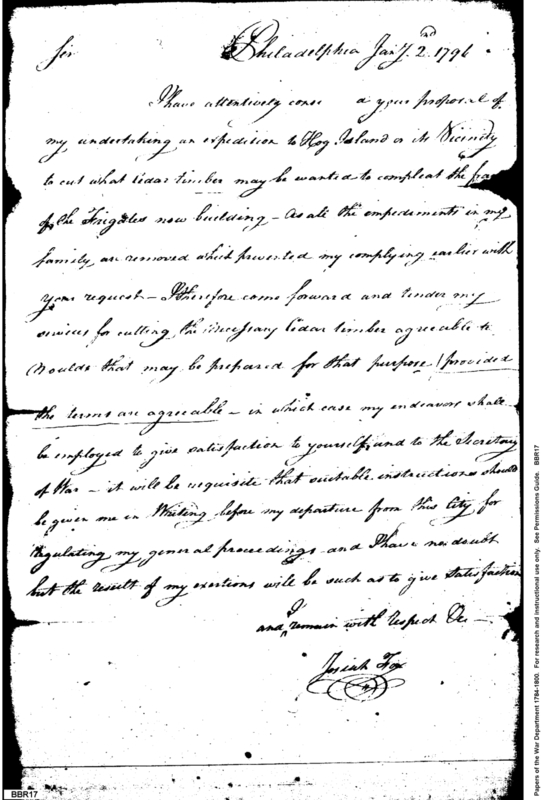 Sir Philadelphia Jany. 2nd 1796
I have attentively cons d your proposal of
my undertaking an expedition to Hog Island or its Vicinity
to cut what Cedar timber may be wanted to compleat the fra
of the Frigates now building – As all the impediments in my
family are removed which prevented my complying earlier with
your request – I therefore come forward and tender my
services for cutting the necessary Cedar timber agreeable to
Moulds that may be prepared for that purpose / provided
the terms are agreeable – in which case my endeavors shall
be employed to give satisfaction to yourself and to the Secretary
of War – it will be requisite that suitable instructions should
be given me in Writing before my departure from this City for
regulating my general proceedings and I have no doubt
but the result of my exertions will be such as to give Satisfaction
and I remain with respect &c –
Josiah Fox
BBR17
Papers of the War Department 1784-1800. For research and instructional use only. See Permissions Guide. BBR17